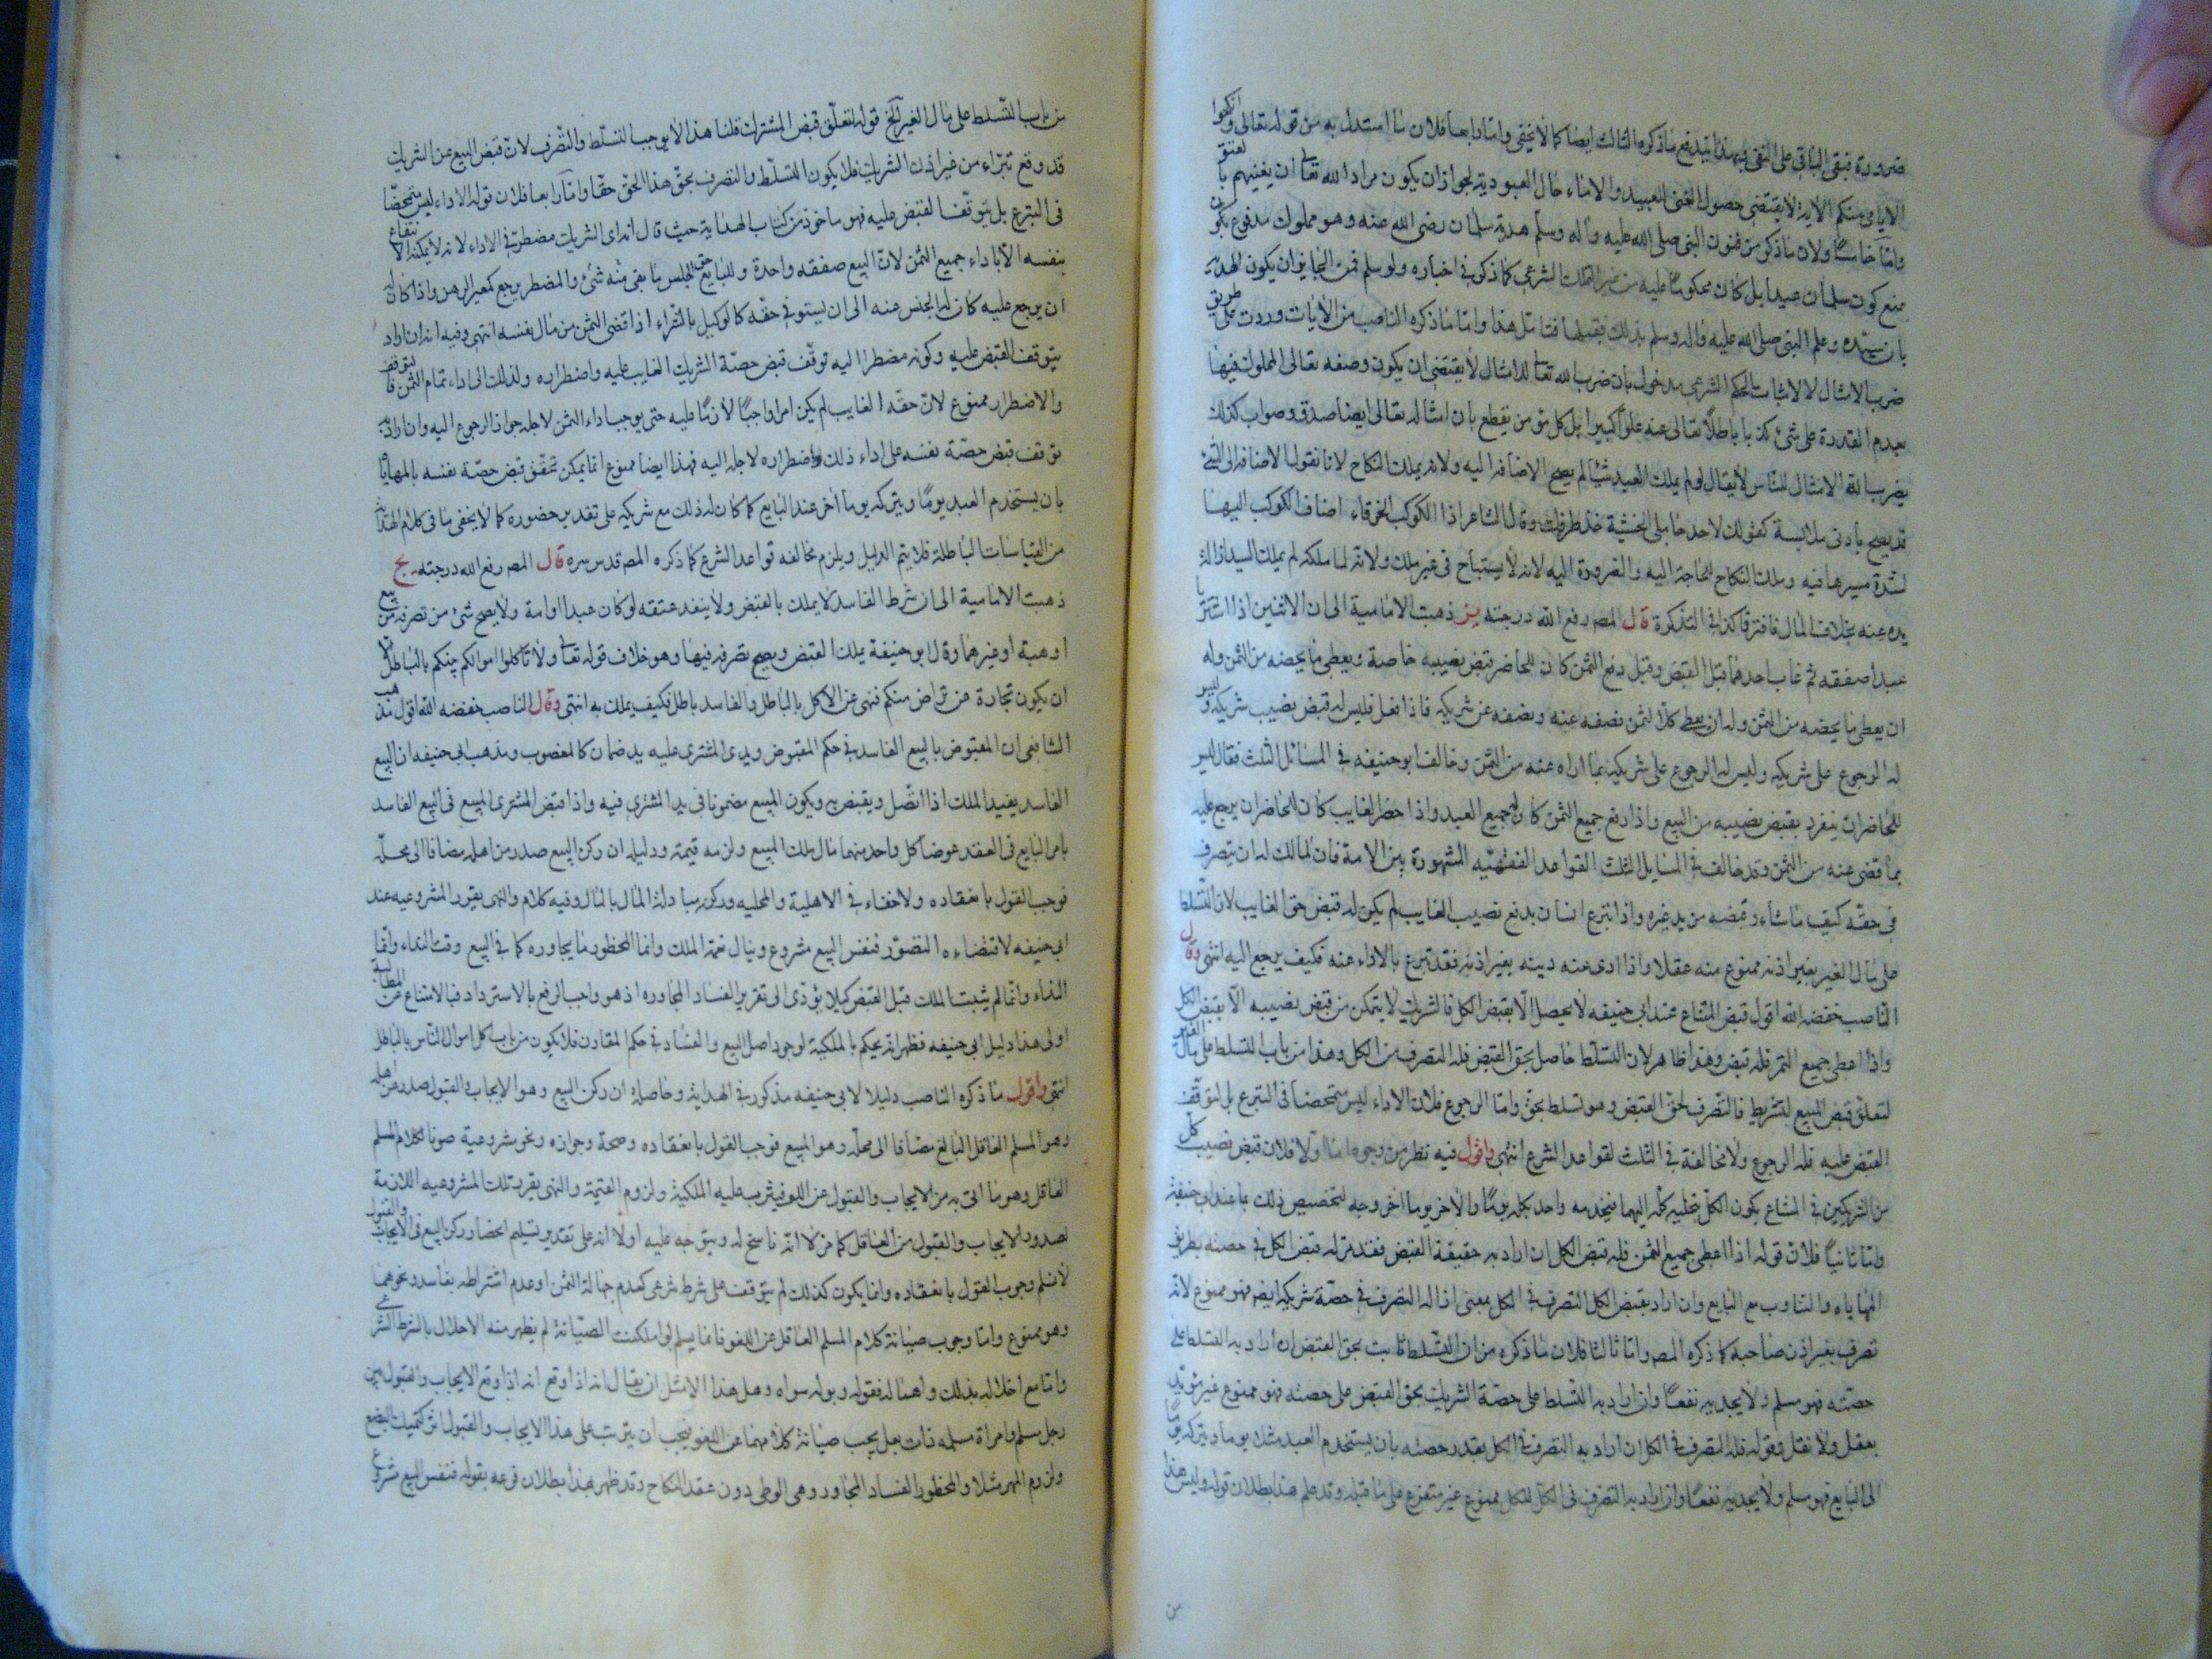 ضرورة فبقى الباقى على النفى وبهذا يندفع ما ذكره الثالث ايضا كما لا يخفى واما رابعا فلان ما استدل به من قوله تعالى وانكحوا
الايامى منكم الاية لا يقتضى حصول الغنى للعبيد والاماء حال العبودية لجواز ان يكون مراد الله تعالى ان يغنيهم بالعتق
واما خامسا ولان ما ذكر من قبول النبى صلى الله عليه وآله وسلم هدية سلمان رضى الله عنه وهو مملوك مدفوع بكون
منع كون سلمان عبدا بل كان محكوما عليه من غير الملك الشرعى كما ذكر فى اخباره ولو سلم فمن الجايز ان يكون الهدية
باذن سيده وعلم النبى صلى الله عليه وآله وسلم بذلك فقبلها فتامل هذا واما ما ذكره الناصب من الايات وردت على طريق
ضرب الامثال لا لاثبات الحكم الشرعى مدخول بان ضرب الله تعالى للامثال لا يقتضى ان يكون وصفه تعالى المملوك فيها
بعدم القدرة على شئ كذبا باطلا تعالى عنه علوا كبيرا بل كل مؤمن يقطع بان امثاله تعالى ايضا صدق وصواب كذلك
يضرب الله الامثال للناس لا يقال لو لم يملك العبد شيئا لم يصح الاضافة اليه ولانه يملك النكاح لانا نقول الاضافة الى الشئ
قد يصح بادنى ملابسة كقولك لاحد حاملى الخشبة خذ طرفك وقال الشاعر اذا الكوكب الخرقاء اضاف الكوكب اليها
لشدة سيرها فيه وملك النكاح للحاجة اليه والضرورة اليه لانه لا يستباح فى غير ملك ولانه لما ملكه لم يملك السيد ازالة
يده عنه بخلاف المال فافترقا كذا فى التذكرة قال المصه رفع الله درجته يز ذهبت الامامية الى ان الاثنين اذا اشتريا
عبدا صفقة ثم غاب احدهما قبل القبض وقبل دفع الثمن كان للحاضر قبض نصيبه خاصة ويعطى ما يخصه من الثمن وله
ان يعطى ما يخصه من الثمن وله ان يعطى كل الثمن نصفه عنه ونصفه عن شريكه فاذا فعل فليس له قبض نصيب شريكه وليس
له الرجوع على شريكه وليس له الرجوع على شريكه بما اداه عنه من الثمن وخالف ابو حنيفه فى المسائل الثلث فقال ليس
للحاضر ان ينفرد بقبض نصيبه من المبيع واذا دفع جميع الثمن كان له جميع العبد واذا حضر الغايب كان للحاضر ان يرجع عليه
بما قضى عنه من الثمن وقد خالف فى المسايل الثلث القواعد الفقهيه المشهورة بين الامة فان المالك له ان يتصرف
فى حقه كيف ما شاء وقبضه من يد غيره واذا تبرع انسان بدفع نصيب الغايب لم يكن له قبض حق الغايب لان التسلط
على مال الغير بغير اذنه ممنوع منه عقلا واذا ادى عنه دينه بغير اذنه فقد تبرع بالاداء عنه فكيف يرجع اليه انتهى وقال
الناصب خفضه الله اقول قبض المشاع عند ابى حنيفه لا يحصل الا بقبض الكل فالشريك لا يتمكن من قبض نصيبه الا بقبض الكل
واذا اعطى جميع الثمن فله قبض وهذا ظاهر لان التسلط حاصل بحق القبض فله التصرف من الكل وهذا من باب التسلط على مال الغير
لتعلق قبض المبيع للشريك فالتصرف لحق القبض وهو تسلط بحق واما الرجوع فلان الاداء ليس متمحضا فى التبرع بل لتوقف
القبض عليه فله الرجوع ولا مخالفة فى الثلث لقواعد الشرع انتهى واقول فيه نظر من وجوه اما اولا فلان قبض نصيب كل
من الشريكين فى المشاع يكون الكل تخلية كله اليهما فيخدمه واحد كله يوما والاخر يوما اخر وجه لتخصيص ذلك بما عند ابى حنيفة
واما ثانيا فلان قوله اذا اعطى جميع الثمن فله قبض الكل ان اراد به حقيقة القبض فقد مر له قبض الكل فى حصته بطريق
المهاياه والتناوب مع البايع وان اراد بقبض الكل التصرف فى الكل بمعنى ان له التصرف فى حصة شريكه ايضه فهو ممنوع لانه
تصرف بغير اذن صاحبه كما ذكره المصه واما ثالثا فلان ما ذكره من ان التسلط ثابت بحق القبض ان اراد به التسلط على
حصته فهو مسلم ولا يجديه نفعا وان اراد به التسلط على حصة الشريك بحق القبض على حصته فهو ممنوع غير مؤيد
بعقل ولا نقل وقوله فله التصرف فى الكل ان اراد به التصرف فى الكل بقدر حصته بان يستخدم العبد مثلا يوما ويتركه يوما
الى البايع فهو مسلم ولا يجديه نفعا وان اراد به التصرف فى الكل للكل ممنوع غير متفرع على ما قبله وقد علم هذا بطلان قوله وليس هذا
من
من باب التسلط على مال الغير الخ قوله لتعلق قبض المشترك قلنا هذا لا يوجب التسلط والتصرف لان قبض المبيع عن الشريك
قد وقع تبراء من غير اذن الشريك فلا يكون التسلط والتصرف بحق هذا الحق حقا واما رابعا فلان قوله الاداء ليس متمحضا
فى التبرع بل يتوقف القبض عليه فهو ماخوذ من كتاب الهداية حيث قال انه اى الشريك مضطر فى الاداء لانه لا يمكنه الانتفاع
بنفسه الا باداء جميع الثمن لان البيع صفقه واحدة وللبايع حق الحبس ما بقى منه شئ والمضطر يرجع كمعير الرهن واذا كان له
ان يرجع عليه كان له الحبس عنه الى ان يستوفى حقه كالوكيل بالشراء اذا قضى الثمن من مال نفسه انتهى وفيه انه ان اراد
يتوقف القبض عليه وكونه مضطرا اليه توقف قبض حصة الشريك الغايب عليه واضطراره ولذلك الى اداء تمام الثمن فالتوقف
والاضطرار ممنوع لان حقه الغايب لم يكن امرا واجبا لازما عليه حتى يوجب اداء الثمن لاجله جواز الرجوع اليه وان اراد به
توقف قبض حصة نفسه على اداء ذلك واضطراره لاجله اليه فهذا ايضا ممنوع انما يمكن تحقق قبض حصة نفسه بالمهاياة
بان يستخدم العبد يوما ويتركه يوما اخر عند البايع كما كان له ذلك مع شريكه على تقدير حضوره كما لا يخفى ما فى كلام الهداية
من القياسات الباطلة فلا يتم الدليل ويلزم مخالفه قواعد الشرع كما ذكره المصه قدس سره قال المصه رفع الله درجته يح
ذهبت الامامية الى ان شرط الفاسد لا يملك بالقبض ولا ينفذ عتقه لو كان عبدا او امة ولا يصح شئ من تصرفه من بيع
او هبة او غيرهما وقال ابو حنيفة يملك القبض ويصح تصرفه فيها وهو خلاف قوله تعالى ولا تاكلوا اموالكم بينكم بالباطل الا
ان يكون تجارة عن تراض منكم فنهى عن الاكل بالباطل والفاسد باطل فكيف يملك به انتهى وقال الناصب خفضه الله اقول مذهب
الشافعى ان المقبوض بالبيع الفاسد فى حكم المقبوض ويدى المشترى عليه يد ضمان كالمغصوب ومذهب ابى حنيفه ان البيع
الفاسد يفيد الملك اذا اتصل ويقبض به ويكون المبيع مضمونا فى يد المشترى فيه واذا قبض المشترى المبيع فى البيع الفاسد
بامر البايع فى العقد عوضا كل واحد منهما مال ملك المبيع ولزمه قيمته ودليله ان ركن البيع صدر من اهله مضافا الى محله
فوجب القول بانعقاده ولا خفاء فى الاهلية والمحليه وركنه مبادلة المال بالمال وفيه كلام والنهى يقرر المشروعيه عند
ابى حنيفه لاقتضاءه التصور فنفس البيع مشروع وينال نعمة الملك وانما المحظور ما يجاوره كما فى البيع وقت النداء وانما
النداء وانما لم يثبت الملك قبل القبض كيلا يؤدى الى تقرير الفساد المجاوره اذ هو واجب الرفع بالاسترداد فبالامتناع عن المطالبة
اولى هذا دليل ابى حنيفه فظهر انه يحكم بالملكية لوجود اصل البيع والفساد فى حكم المقارن فلا يكون من باب اكل اموال الناس بالباطل
انتهى واقول ما ذكره الناصب دليلا لابى حنيفه مذكور فى الهداية وحاصله ان ركن البيع وهو الايجاب والقبول صدر من اهله
وهو المسلم العاقل البالغ مضافا الى محله وهو المبيع فوجب القول بانعقاده وصحة وجوازه ونحو مشروعيته صونا لكلام المسلم
العاقل وهو ما اتى به من الايجاب والقبول عن اللغو فيترتب عليه الملكية ولزوم القيمة والنهى يقرر تلك المشروعيه اللازمة
لصدور الايجاب والقبول من العاقل كما مر لا انه ناسخ له ويتوجه عليه اولا انه على تقدير تسليم انحصار ركن البيع فى الايجاب والقبول
لا نسلم وجوب القول بانعقاده وانما يكون كذلك لو لم يتوقف على شرط شرعى كعدم جهالة الثمن او عدم اشتراطه بفاسد ونحوهما
وهو ممنوع واما وجوب صيانة كلام المسلم العاقل عن اللغو فانما يسلم لو امكنت الصيانة لم يظهر منه الاخلال بالشرط الشرعى
واما مع اخلاله بذلك واهماله فقوله وبوله سواه وهل هذا الا مثل ان يقال انه اذا وقع انه اذا وقع الايجاب والقبول بين
رجل مسلم وامراة مسلمه ذات بعل يجب صيانة كلام منهما عن اللغو فيجب ان يترتب على هذا الايجاب والقبول اثر كتمليك البضع
ولزوم المهر مثلا والمحظور الفساد المجاور وهى الوطى دون عقد النكاح وقد ظهر بهذا بطلان فرعه بقوله فنفس البيع مشروع